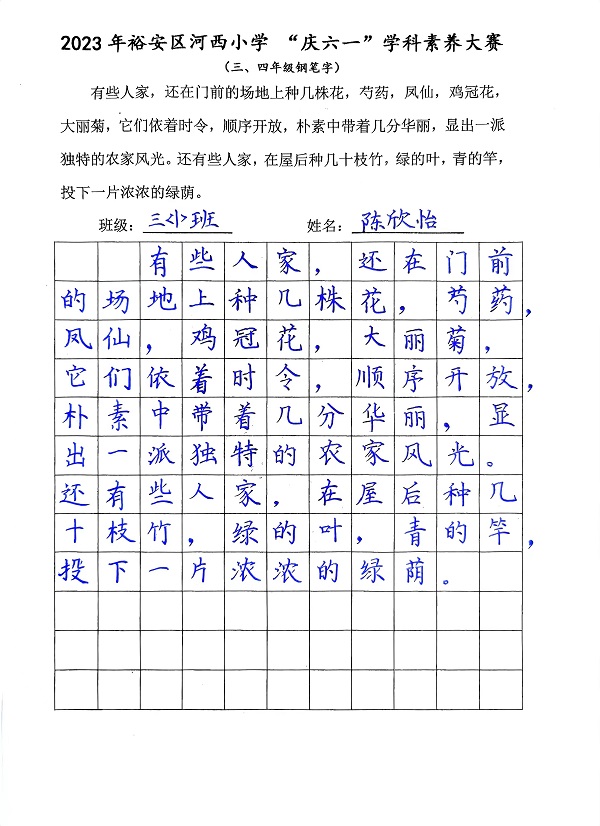 2023年裕安区河西小学 “庆六一”学科素养大赛
（三、四年级钢笔字）
有些人家，还在门前的场地上种几株花，芍药，凤仙，鸡冠花，
大丽菊，它们依着时令，顺序开放，朴素中带着几分华丽，显出一派
独特的农家风光。还有些人家，在屋后种几十枝竹，绿的叶，青的竿，
投下一片浓浓的绿荫。
班级：三小班 姓名：陈欣怡
有些人家，还在门前
的场地上种几株花，芍药，
凤仙，鸡冠花，大丽菊，
它们依着时令，顺序开放，
朴素中带着几分华丽，显
出一派独特的农家风光。
还有些人家，在屋后种几
十枝竹，绿的叶，青的竿，
投下一片浓浓的绿荫。